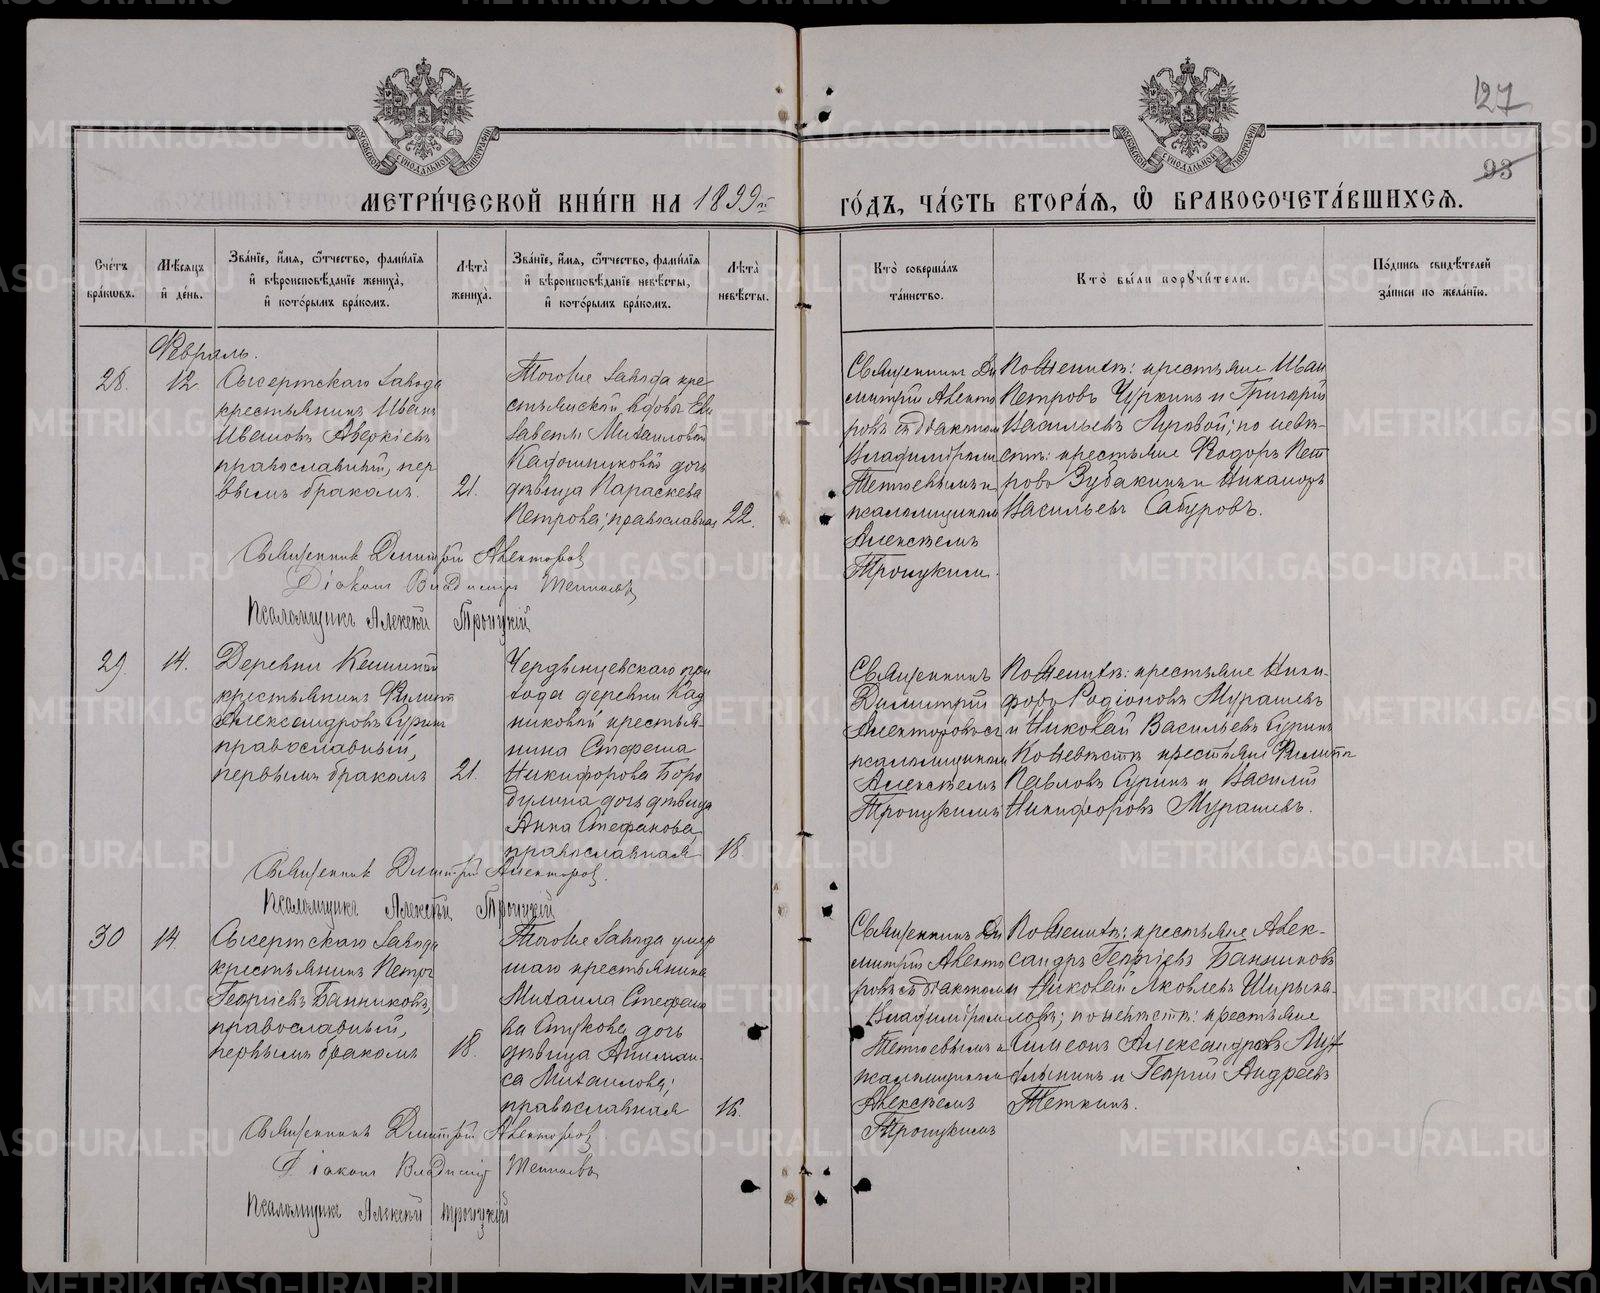 127
93
МЕТРИ́ЧЕСКОЙ КНИ́ГИ НА 1899й ГО́ДЪ, ЧА́СТЬ ВТОРА́Я, Ѡ҆ БРАКОСОЧЕТА́ВШИХСЯ.
Сче́тъ бра́кѡвъ.
Мѣ́сяцъ и҆ де́нь.
Зва́нїе, и҆́мя, ѻ҆́тчество, фами́лїя и҆ вѣроисповѣ́данїе жениха̀, и҆ кото́рымъ бра́комъ.
Лѣ́та жениха̀.
Зва́нїе, и҆́мя, ѻ҆́тчество, фами́лїя и҆ вѣроисповѣ́данїе невѣ́сты, и҆ кото́рымъ бра́комъ.
Лѣ́та невѣ́сты.
Кто̀ соверша́лъ та́инство.
Кто̀ бы́ли порꙋчи́тели.
По́дпись свидѣ́телей за́писи по жела́нїю.
Февраль.
28.
12.
Сысертскаго завода
крестьянинъ Иванъ
Ивановъ Аверкіевъ
православный, пер
вымъ бракомъ.
21.
Тогоже завода кре
стьянской вдовы Ели
заветы Михаиловой
дочь
дѣвица Параскева
Петрова; православная
22.
Священникъ Ди
митрій Алекто
ровъ съ діакономъ
Владиміромъ
и
псаломщикомъ
Алексѣемъ
Троицкимъ.
По женихѣ: крестьяне Иванъ
Петровъ Чуркинъ и Григорій
Васильевъ Луговой; по невѣ-
стѣ: крестьяне Ѳедоръ Пет
ровъ Зубакинъ и Никаноръ
Васильевъ Сабуровъ.
Священникъ Димитрій Алекторовъ
Діаконъ Владиміръ
Псаломщикъ Алексѣй Троицкій
29.
14.
Деревни
крестьянинъ Филиппъ
Александровъ Суринъ
православный,
первымъ бракомъ
21.
при
хода деревни Кад
никовой крестья-
нина Стефана
Никифорова Боро
дулина дочь дѣвица
Анна Стефанова,
православная
18.
Священникъ
Димитрій
Алекторовъ съ
псаломщикомъ
Алексѣемъ
Троицкимъ
По женихѣ: крестьяне Ники-
форъ Родіоновъ Мурашевъ
и Николай Васильевъ Суринъ
По невѣстѣ крестьяне Филиппъ
Павловъ Суринъ и Василій
Никифоровъ Мурашевъ.
Священникъ Димитрій Алекторовъ.
Псаломщикъ Алексѣй Троицкій
30
14.
Сысертскаго завода
крестьянинъ Петръ
Георгіевъ Банниковъ,
православный,
первымъ бракомъ
18.
Тогоже завода умер
шаго крестьянина
Михаила Стефано
ва дочь
дѣвица Анима-
са Михаилова;
православная
16.
Священникъ Ди
митрій Алекто
ровъ съ діакономъ
Владиміромъ
и
псаломщикомъ
Алексѣемъ
Троицкимъ
По женихѣ: крестьяне Алек-
сандръ Георгіевъ Банниковъ
и Николай Яковлевъ Ширыка-
ловъ; по невѣстѣ: крестьяне
Симеонъ Александровъ
и Георгій Андреевъ
Теткинъ.
Священникъ Димитрій Алекторовъ
Діаконъ Владиміръ
Псаломщикъ Алексѣй Троицкій
METRIKI.GASO-URAL.RU